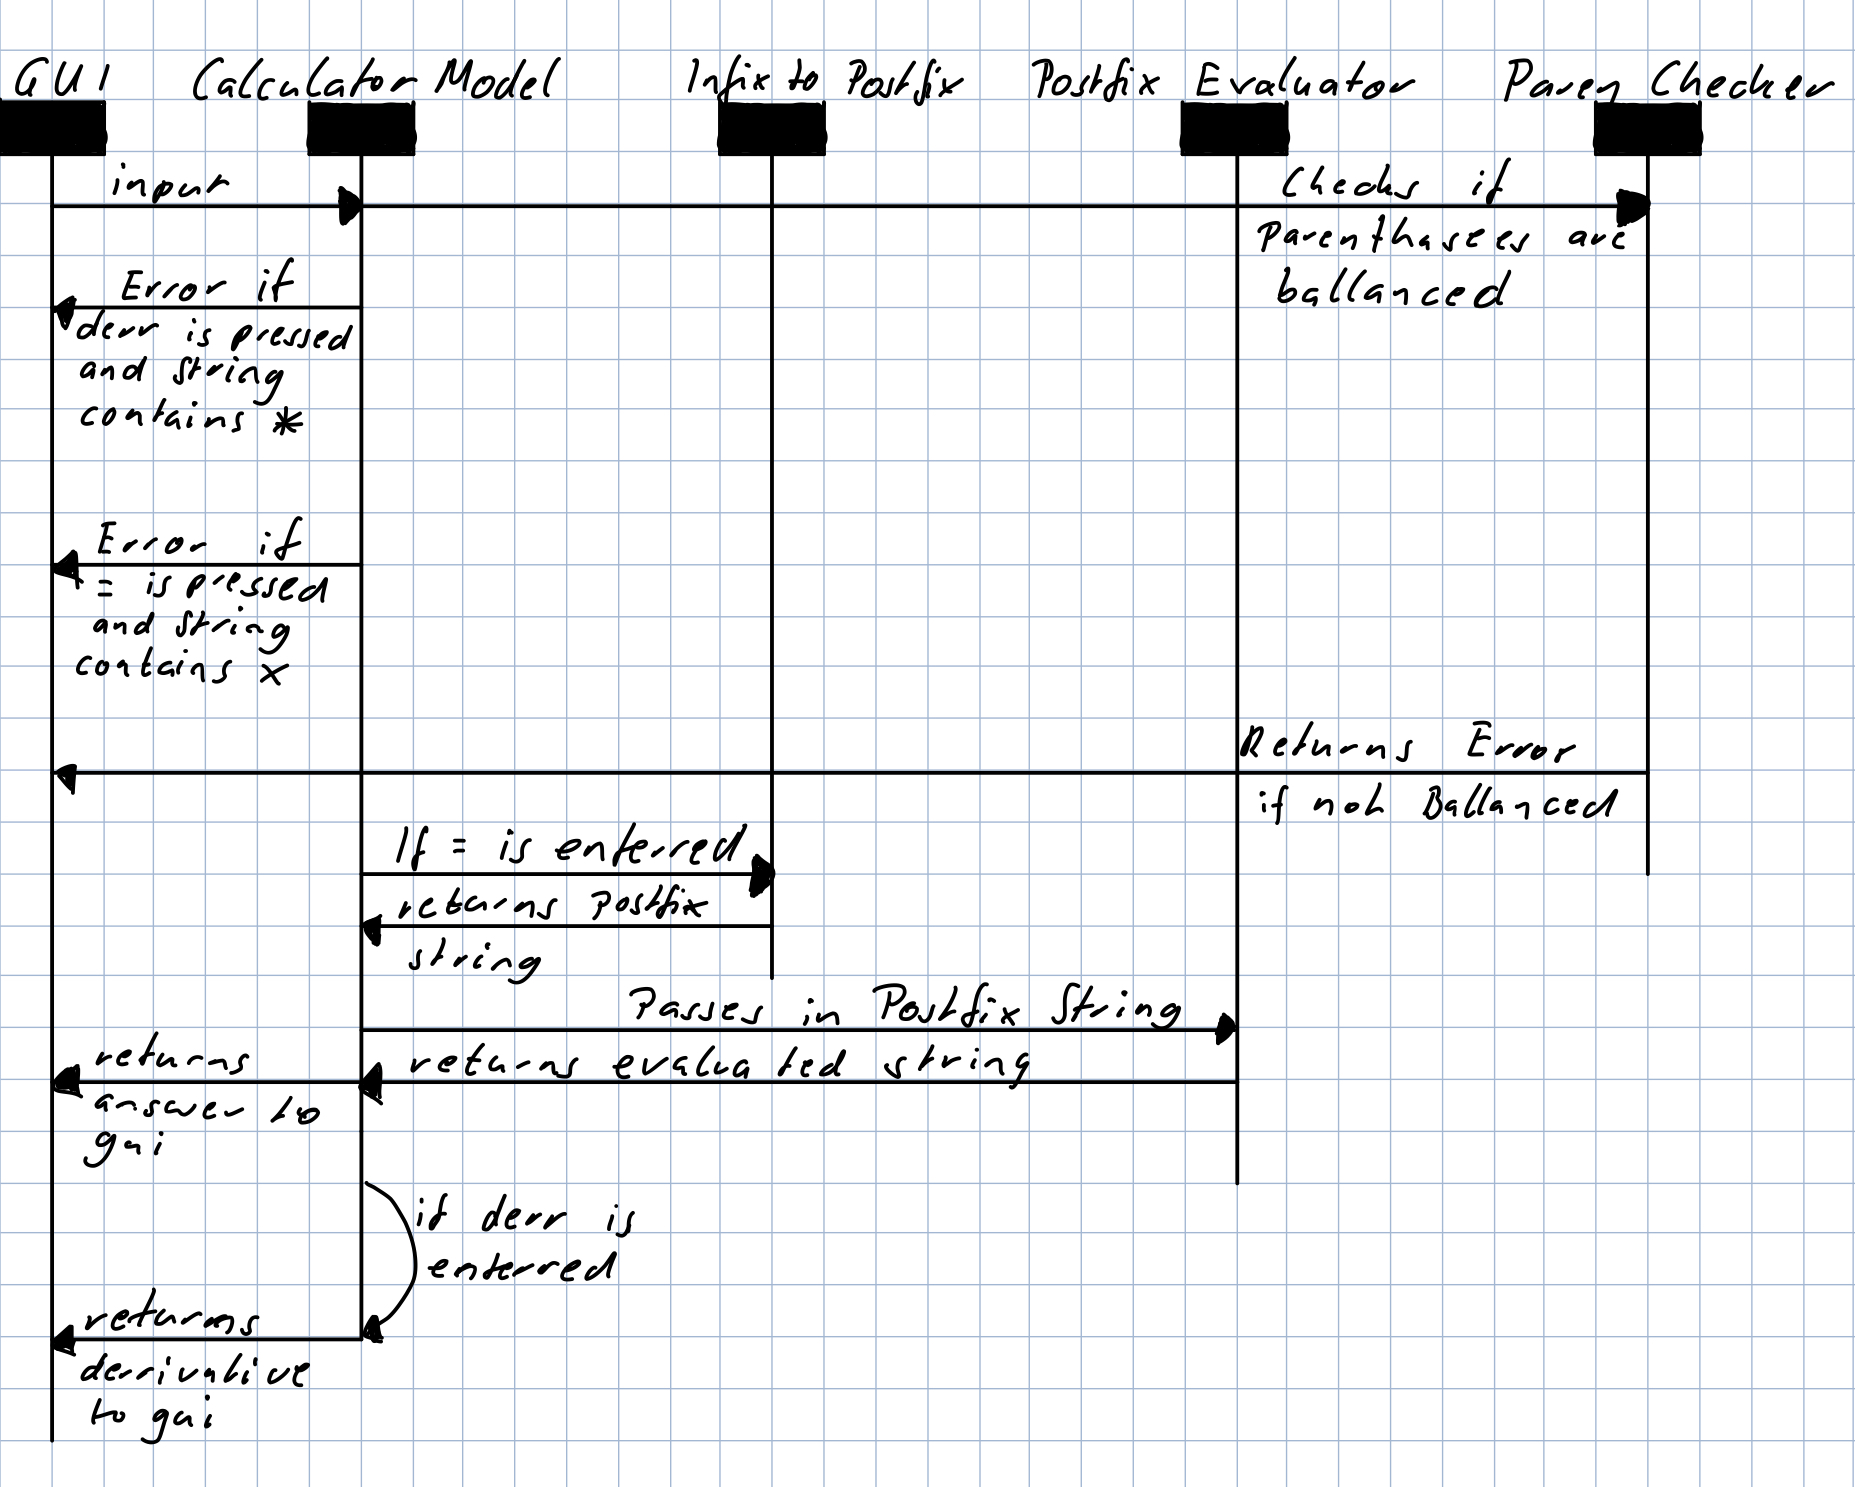 GUI
Calculator Model
Infix to Postfix
Postfix Evaluator
Paren Checker
input
Checks if
Parenthasees are
ballanced
Error if
derr is pressed
and string
contains *
Error if
= is pressed
and string
contains x
Returns Error
if not Ballanced
If = is enterred
returns Postfix
string
Passes in Postfix String
returns evaluated string
returns
answer to
gui
if derr is
enterred
returns
derrivative
to gui